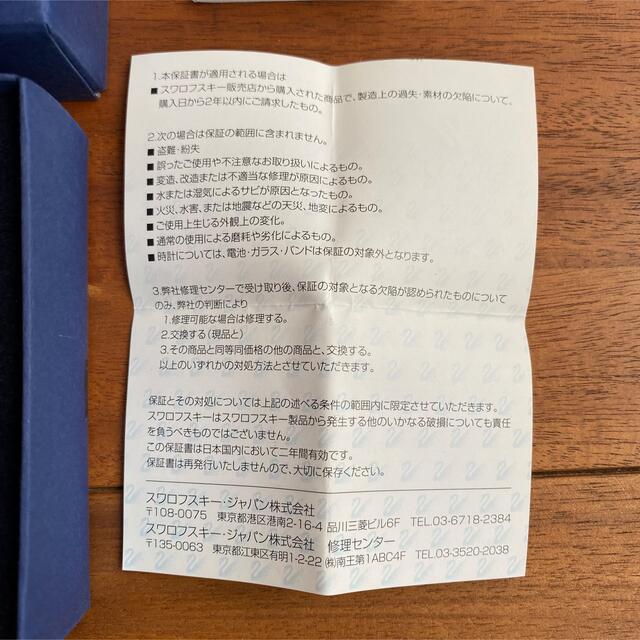 1.本保証書が適用される場合は
■スワロフスキー販売店から購入された商品で、製造上の過失・素材の欠陥について。
購入日から2年以内にご請求したもの。
2.次の場合は保証の範囲に含まれません。
■盗難・紛失
■誤ったご使用や不注意なお取り扱いによるもの。
■変造、改造または不適当な修理が原因によるもの。
■水または湿気によるサビが原因となったもの。
■火災、水害、または地震などの天災、地変によるもの。
■ご使用上生じる外観上の変化。
■通常の使用による磨耗や劣化によるもの。
■時計については、電池・ガラス・バンドは保証の対象外となります。
3.弊社修理センターで受け取り後、保証の対象となる欠陥が認められたものについて
のみ、弊社の判断により
1.修理可能な場合は修理する。
2.交換する(現品と)
3.その商品と同等同価格の他の商品と、交換する。
以上のいずれかの対処方法とさせていただきます。
保証とその対処については上記の述べる条件の範囲内に限定させていただきます。
スワロフスキーはスワロフスキー製品から発生する他のいかなる破損についても責任
を負うべきものではございません。
この保証書は日本国内において二年間有効です。
保証書は再発行いたしませんので、大切に保存ください。
スワロフスキー・ジャパン株式会社
〒108-0075 東京都港区港南2-16-4 品川三菱ビル6F TEL.03-6718-2384
スワロフスキー・ジャパン株式会社 修理センター
〒135-0063 東京都江東区有明1-2-22 ㈱南王第1ABC4F TEL.03-3520-2038